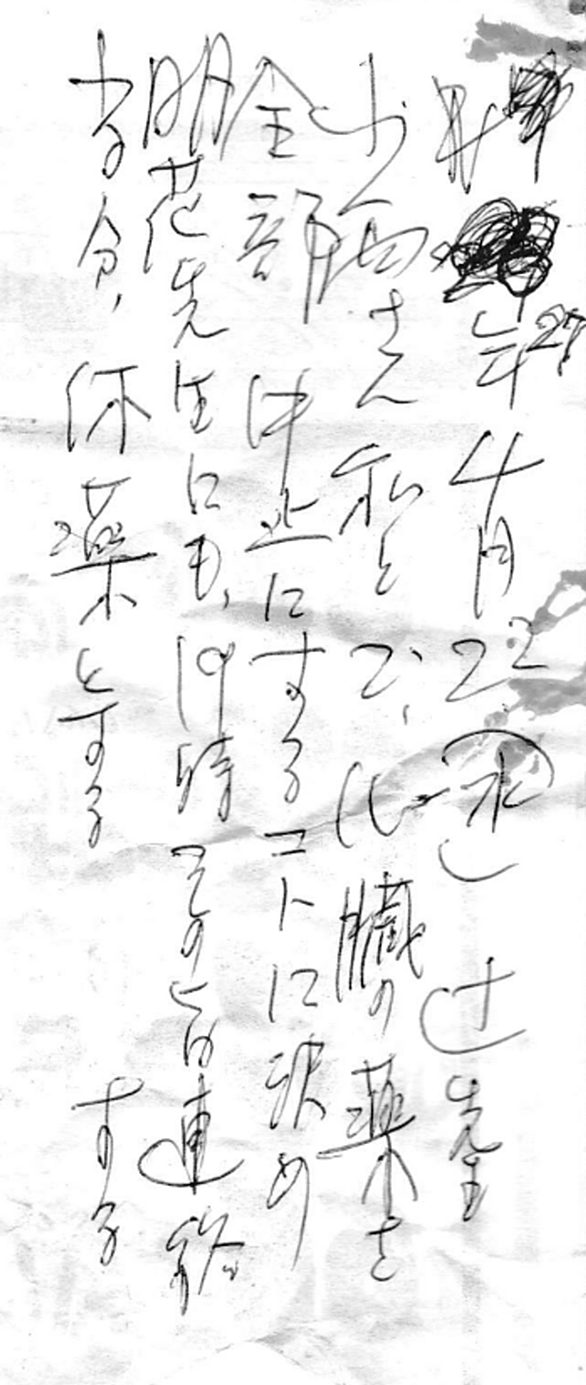 年27 4月22(水) 辻先生
少両さん私とで、心臓の薬を
全部中止にするコトに決め
明花先生にも、19時その旨連絡
する
当分、休薬とする